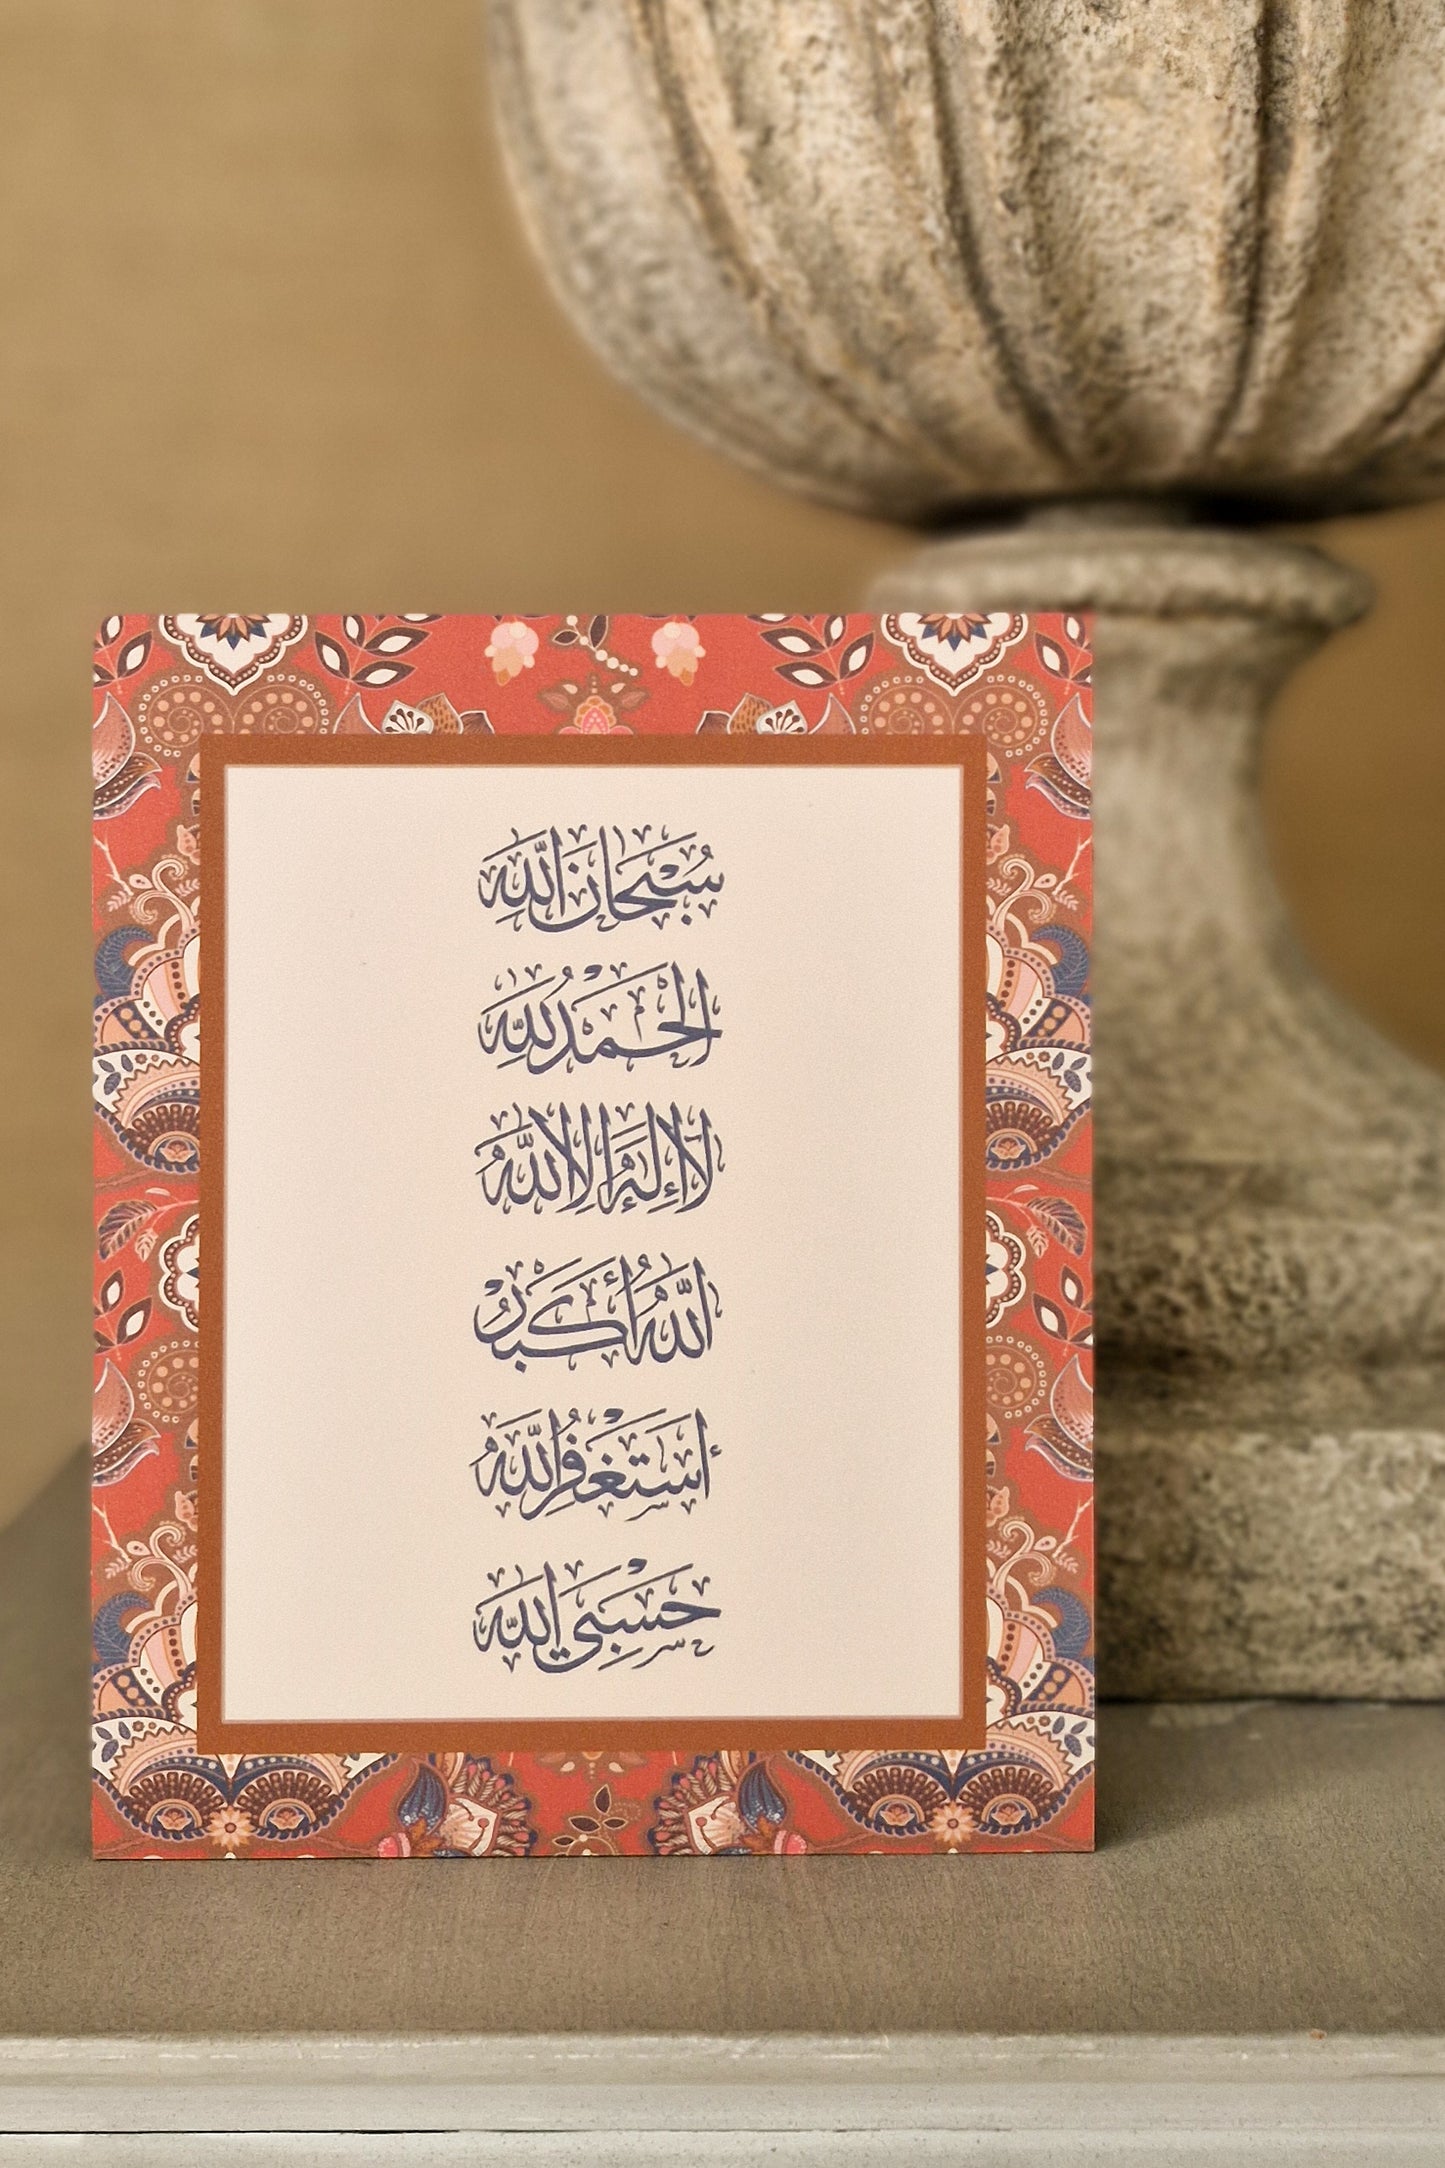 سُبْحَانَ اللَّهِ
الْحَمْدُ لِلَّهِ
لَا إِلَهَ إِلَّا اللَّهُ
اللَّهُ أَكْبَرُ
أَسْتَغْفِرُ اللَّهَ
حَسْبِيَ اللَّهُ